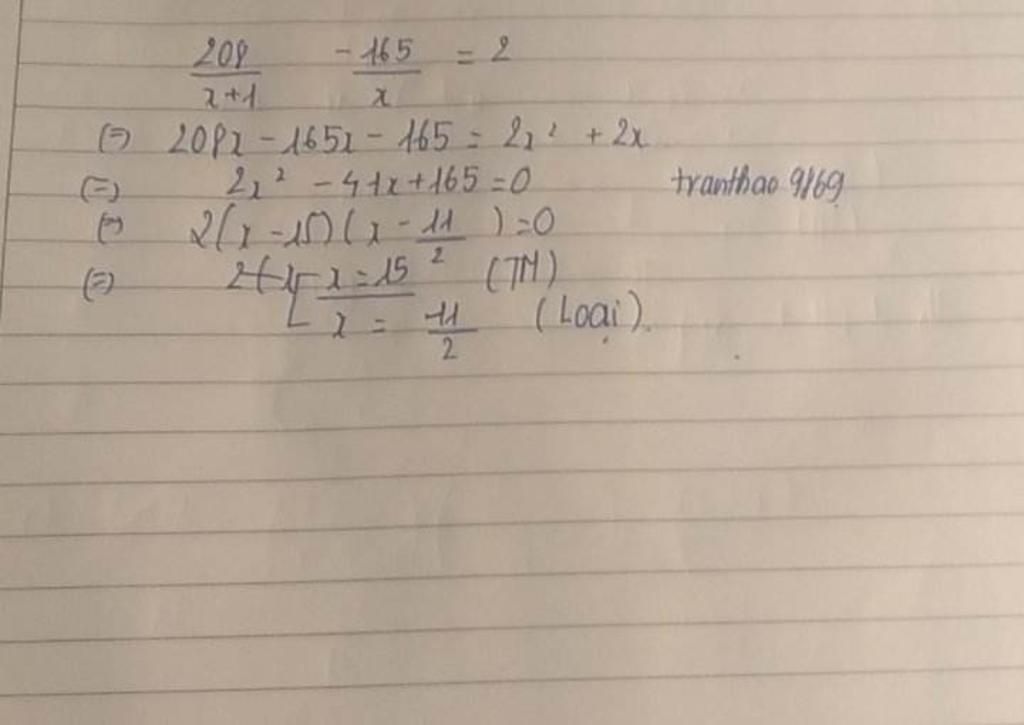 208/(x+1) - 165/x = 2
(=) 208x - 165x - 165 = 2x² + 2x
(=) 2x² - 41x + 165 = 0 tranthao 9169
(=) 2(x - 15)(x - 11/2) = 0
(=) [ x = 15 (TM)
x = 11/2 (Loại).